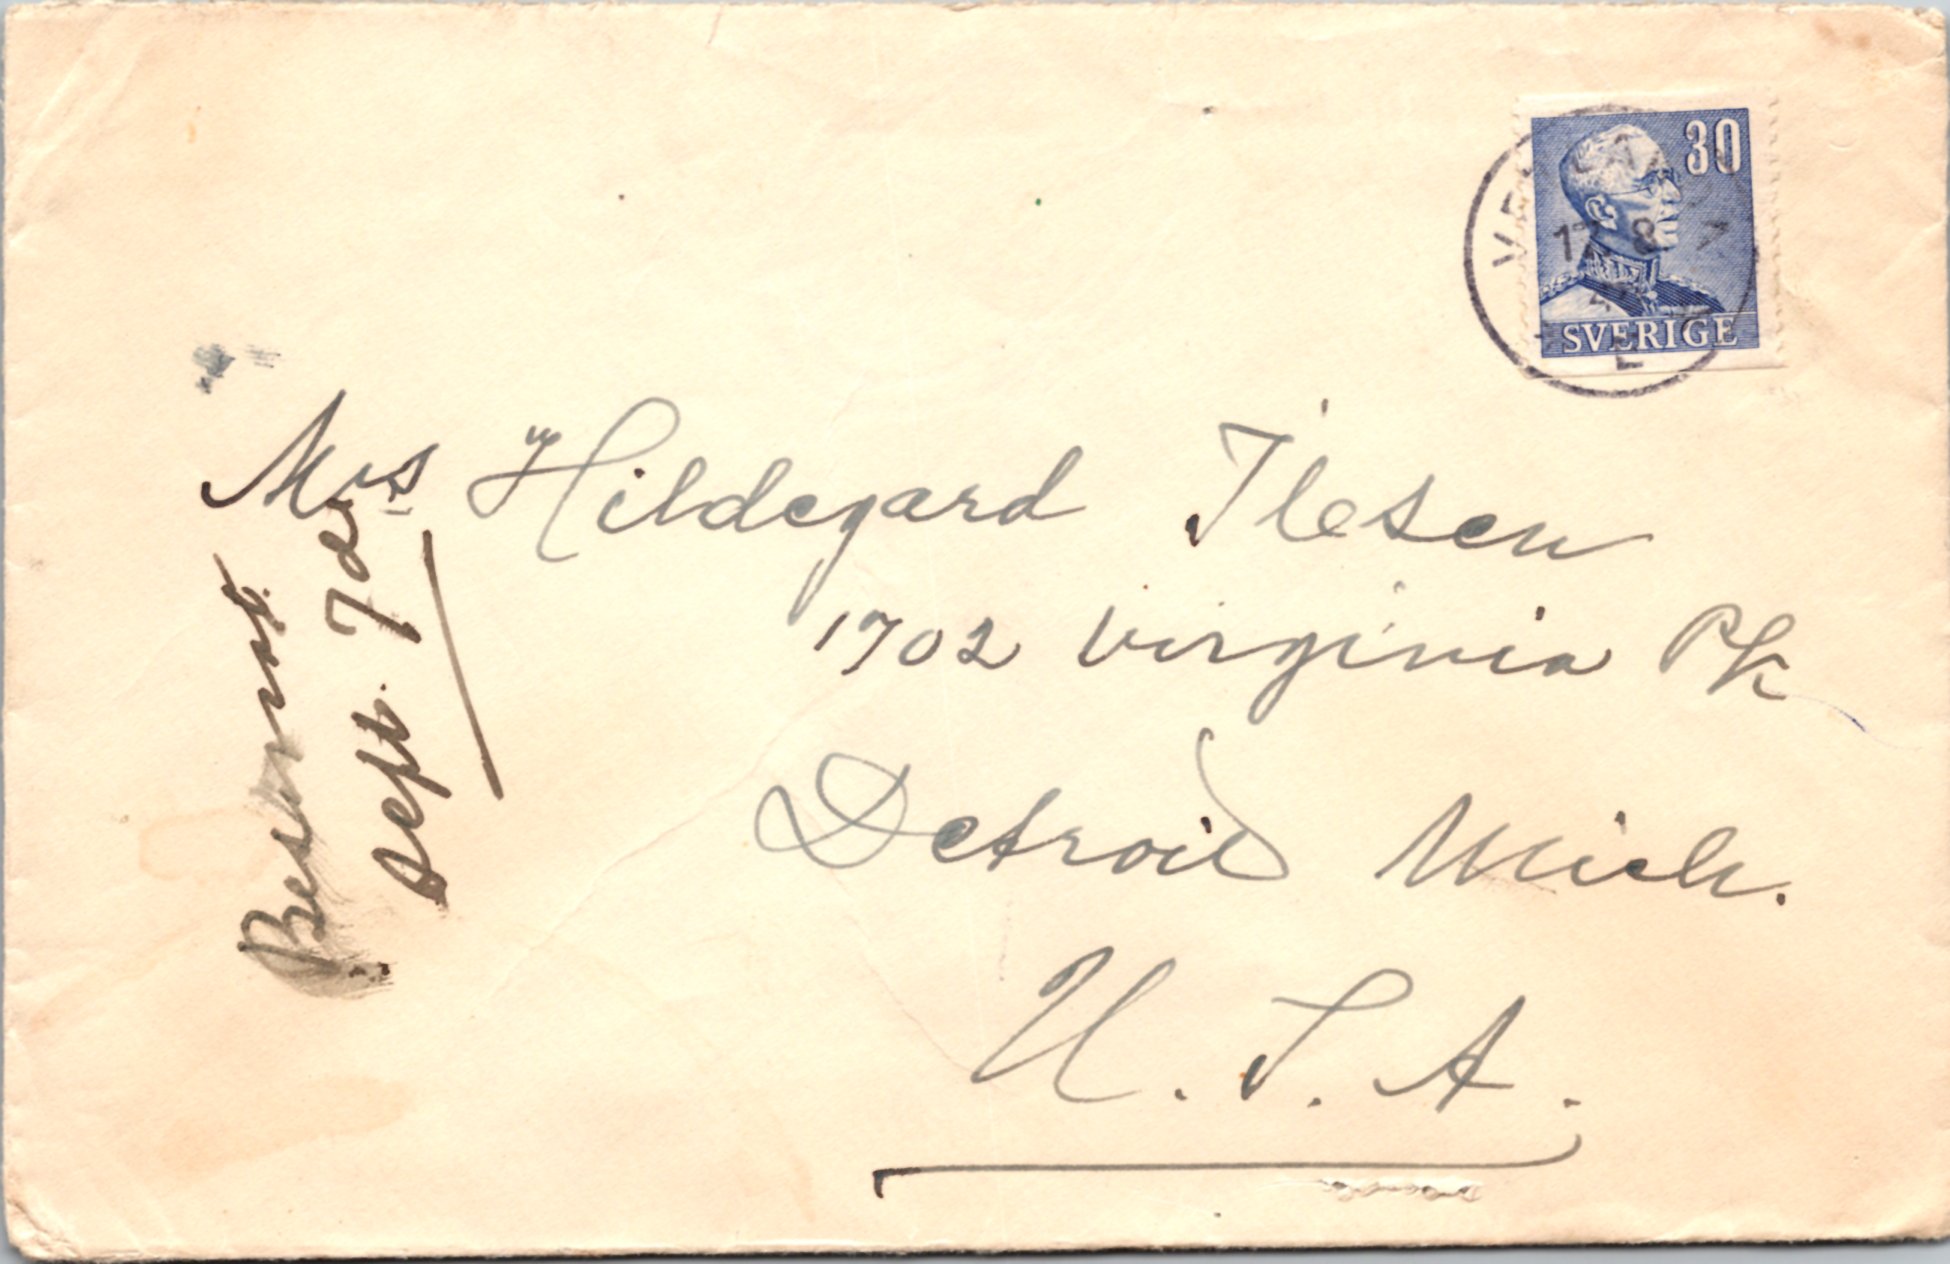 30
17 8
SVERIGE
Mrs Hildegard Ilesen
1702 Virginia Pk
Detroit Mich.
U.S.A.
Besvarat
Sept. 7de